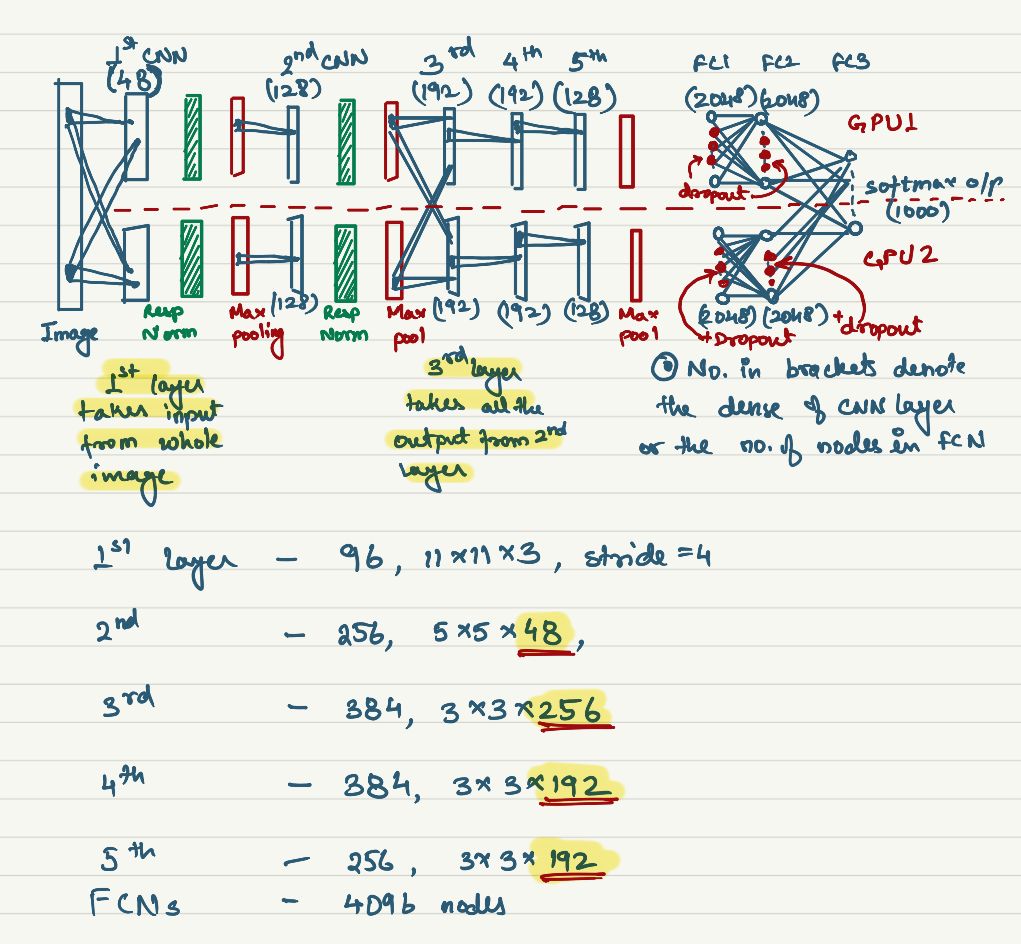 1st CNN
(48)
2nd CNN
(128)
3rd
(192)
4th
(192)
5th
(128)
FC1 FC2 FC3
(2048) (2048)
GPU1
dropout
softmax o/p
(1000)
GPU2
Image
Resp
Norm
Max
pooling
(128)
Resp
Norm
Max
pool
(192)
(192)
(128)
Max
pool
(2048) (2048)
+Dropout
+dropout
1st layer
takes input
from whole
image
3rd layer
takes all the
output from 2nd
layer
No. in brackets denote
the dense of CNN layer
or the no. of nodes in FCN
1st layer - 96, 11×11×3, stride=4
2nd - 256, 5×5×48,
3rd - 384, 3×3×256
4th - 384, 3×3×192
5th - 256, 3×3×192
FCNs - 4096 nodes